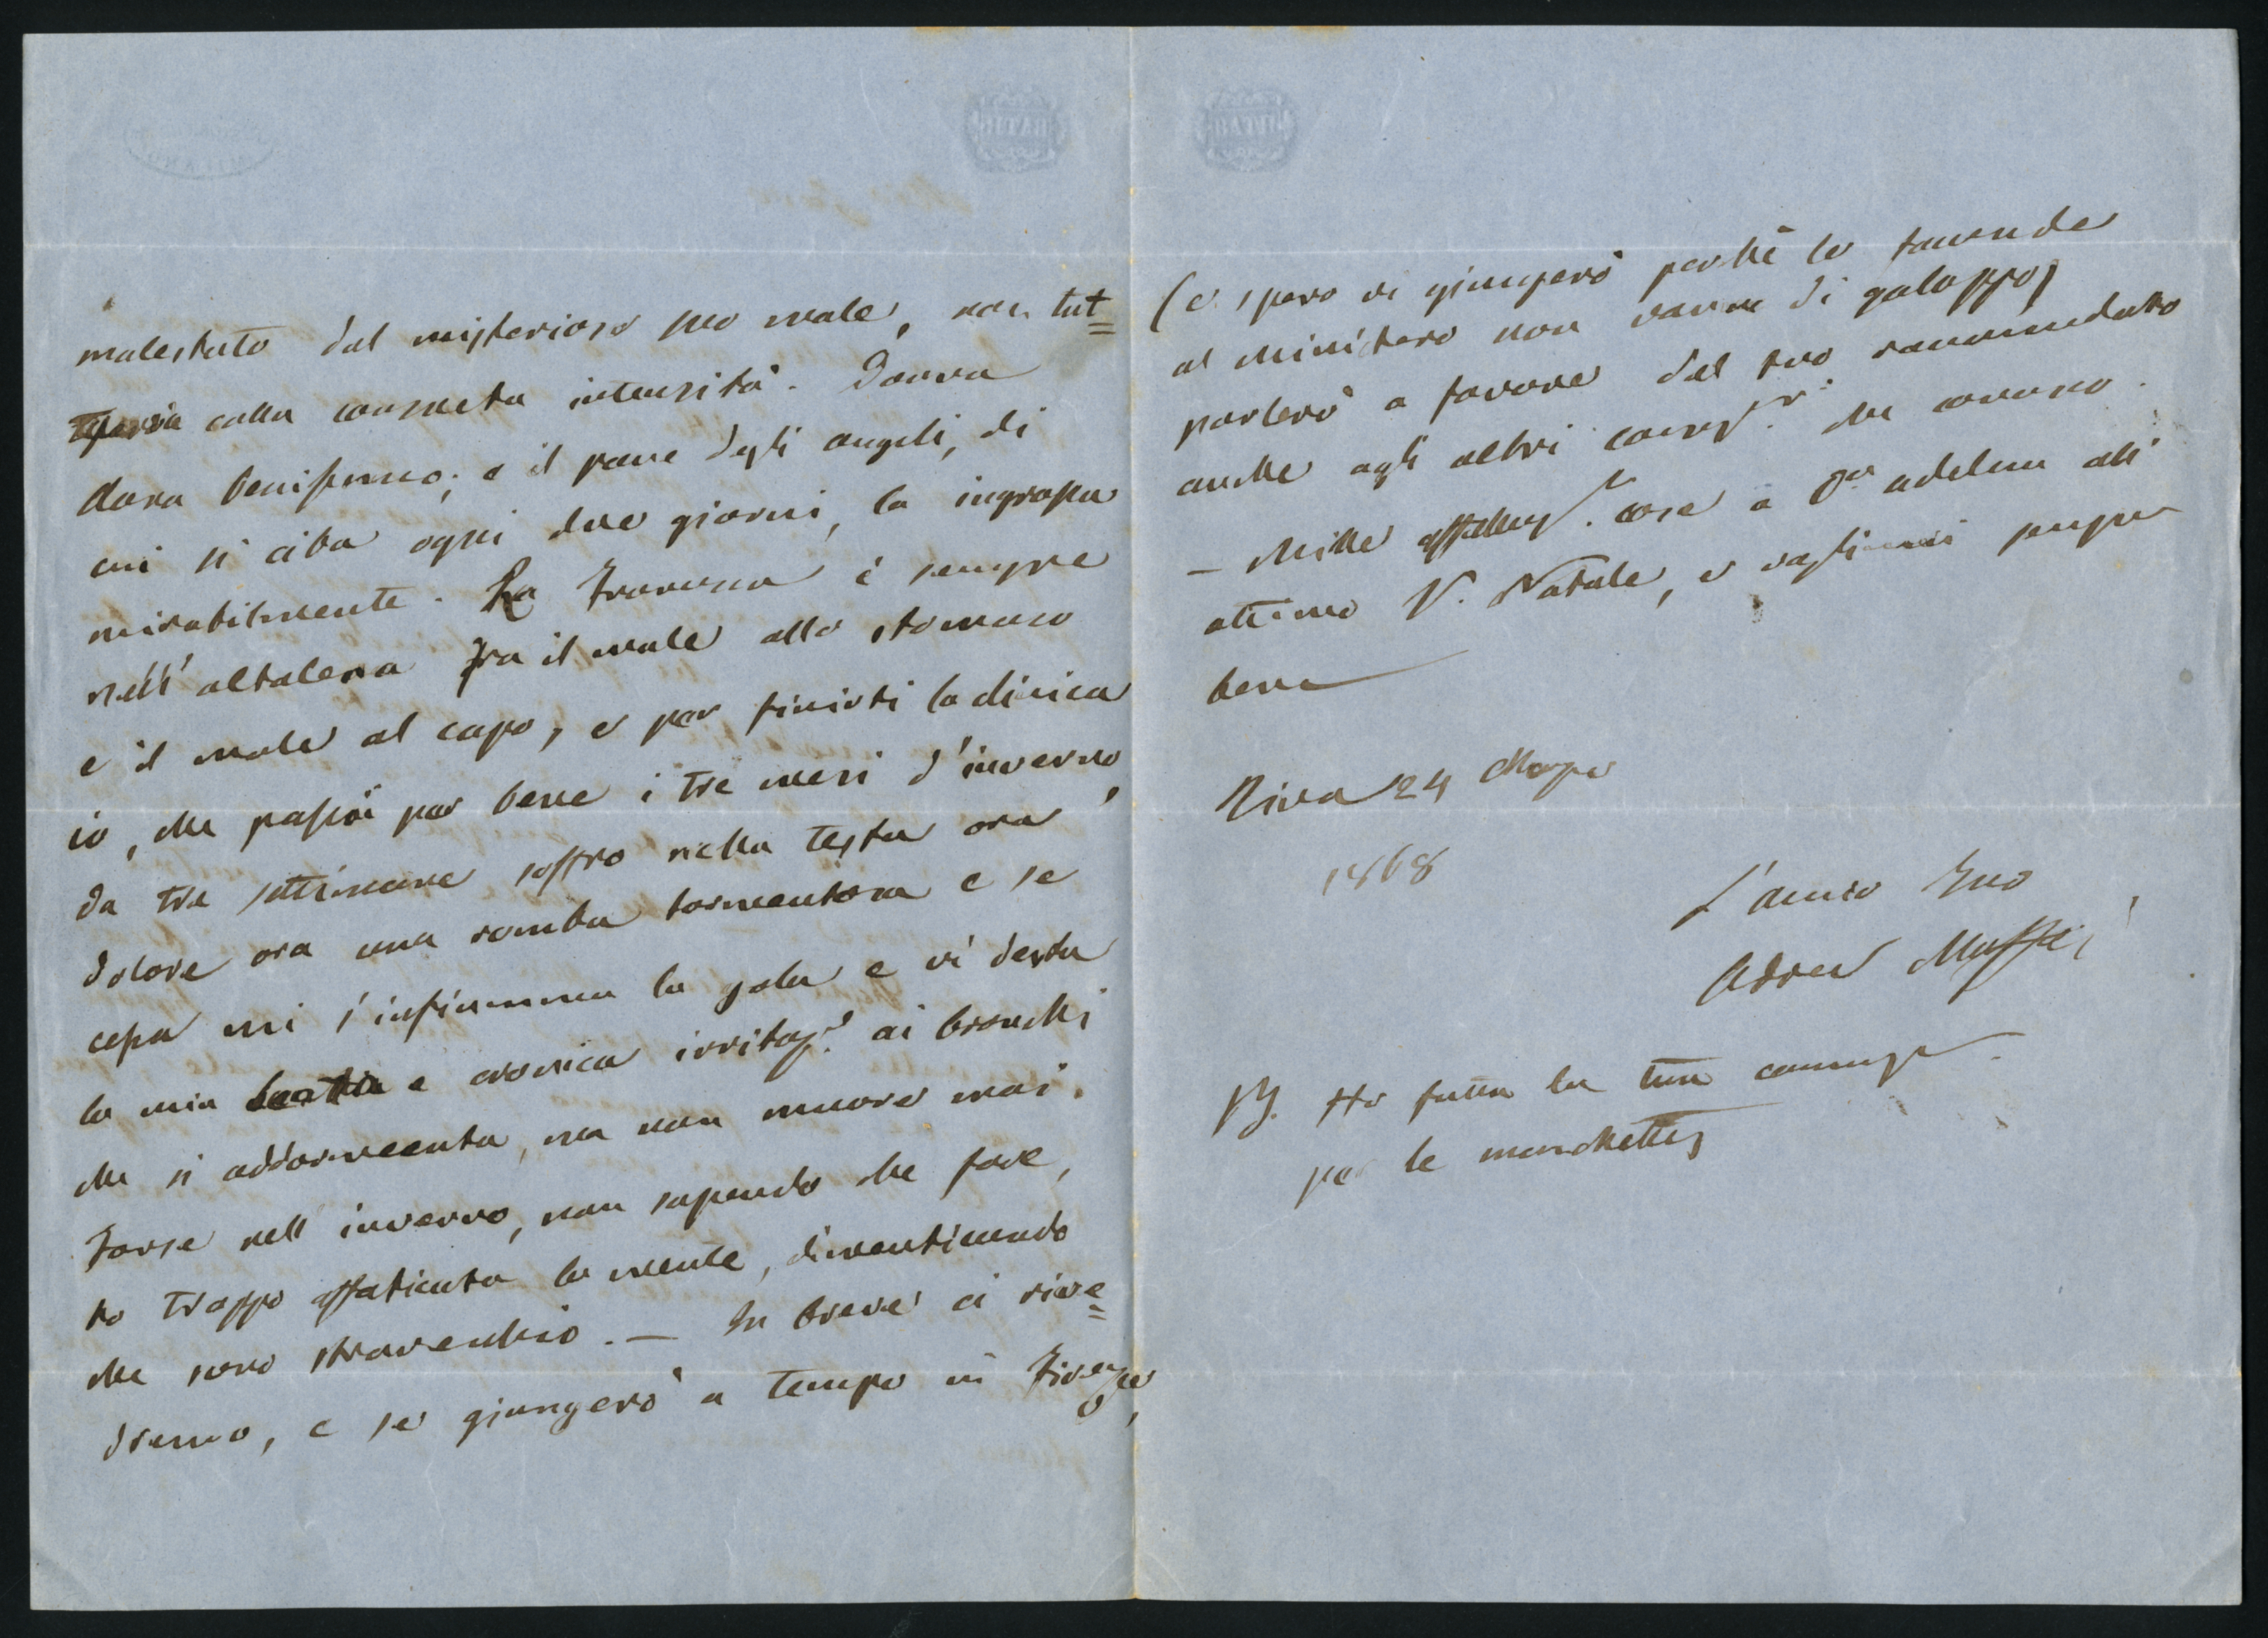 molestato dal misterioso suo male, non tut=
tavia colla consueta intensità. Donna
Clara benissimo; e il pane degli angeli, di
cui si ciba ogni due giorni, la ingrassa
mirabilmente. La Traversa è sempre
nell'altalena fra il male allo stomaco
e il male al capo, e per finirti la clinica
io, che passai per bene i tre mesi d'inverno,
da tre settimane soffro nella testa ora
dolore ora una romba tormentosa e se
cessa mi s'infiamma la gola e vi desta
la mia e cronica irritaz.e ai bronchi
che si addormenta, ma non muore mai.
Forse nell inverno, non sapendo che fare,
ho troppo affaticata la mente, dimenticando
che sono stravecchio. — In breve ci rive=
dremo, e se giungerò a tempo in Firenze,
(e spero vi giungerò perchè le faccende
al Ministero non vanno di galoppo)
parlerò a favore del tuo raccomandato
anche agli altri cons.ri che conosco.
— Mille affettuos.e cose a D.a Adelina all'
ottimo V. Natale, e vogliimi sempre
bene
Riva 24 Marzo
1868
L'amico tuo
Andrea Maffei
PS. Ho fatta la tua commis.e
per le marchette